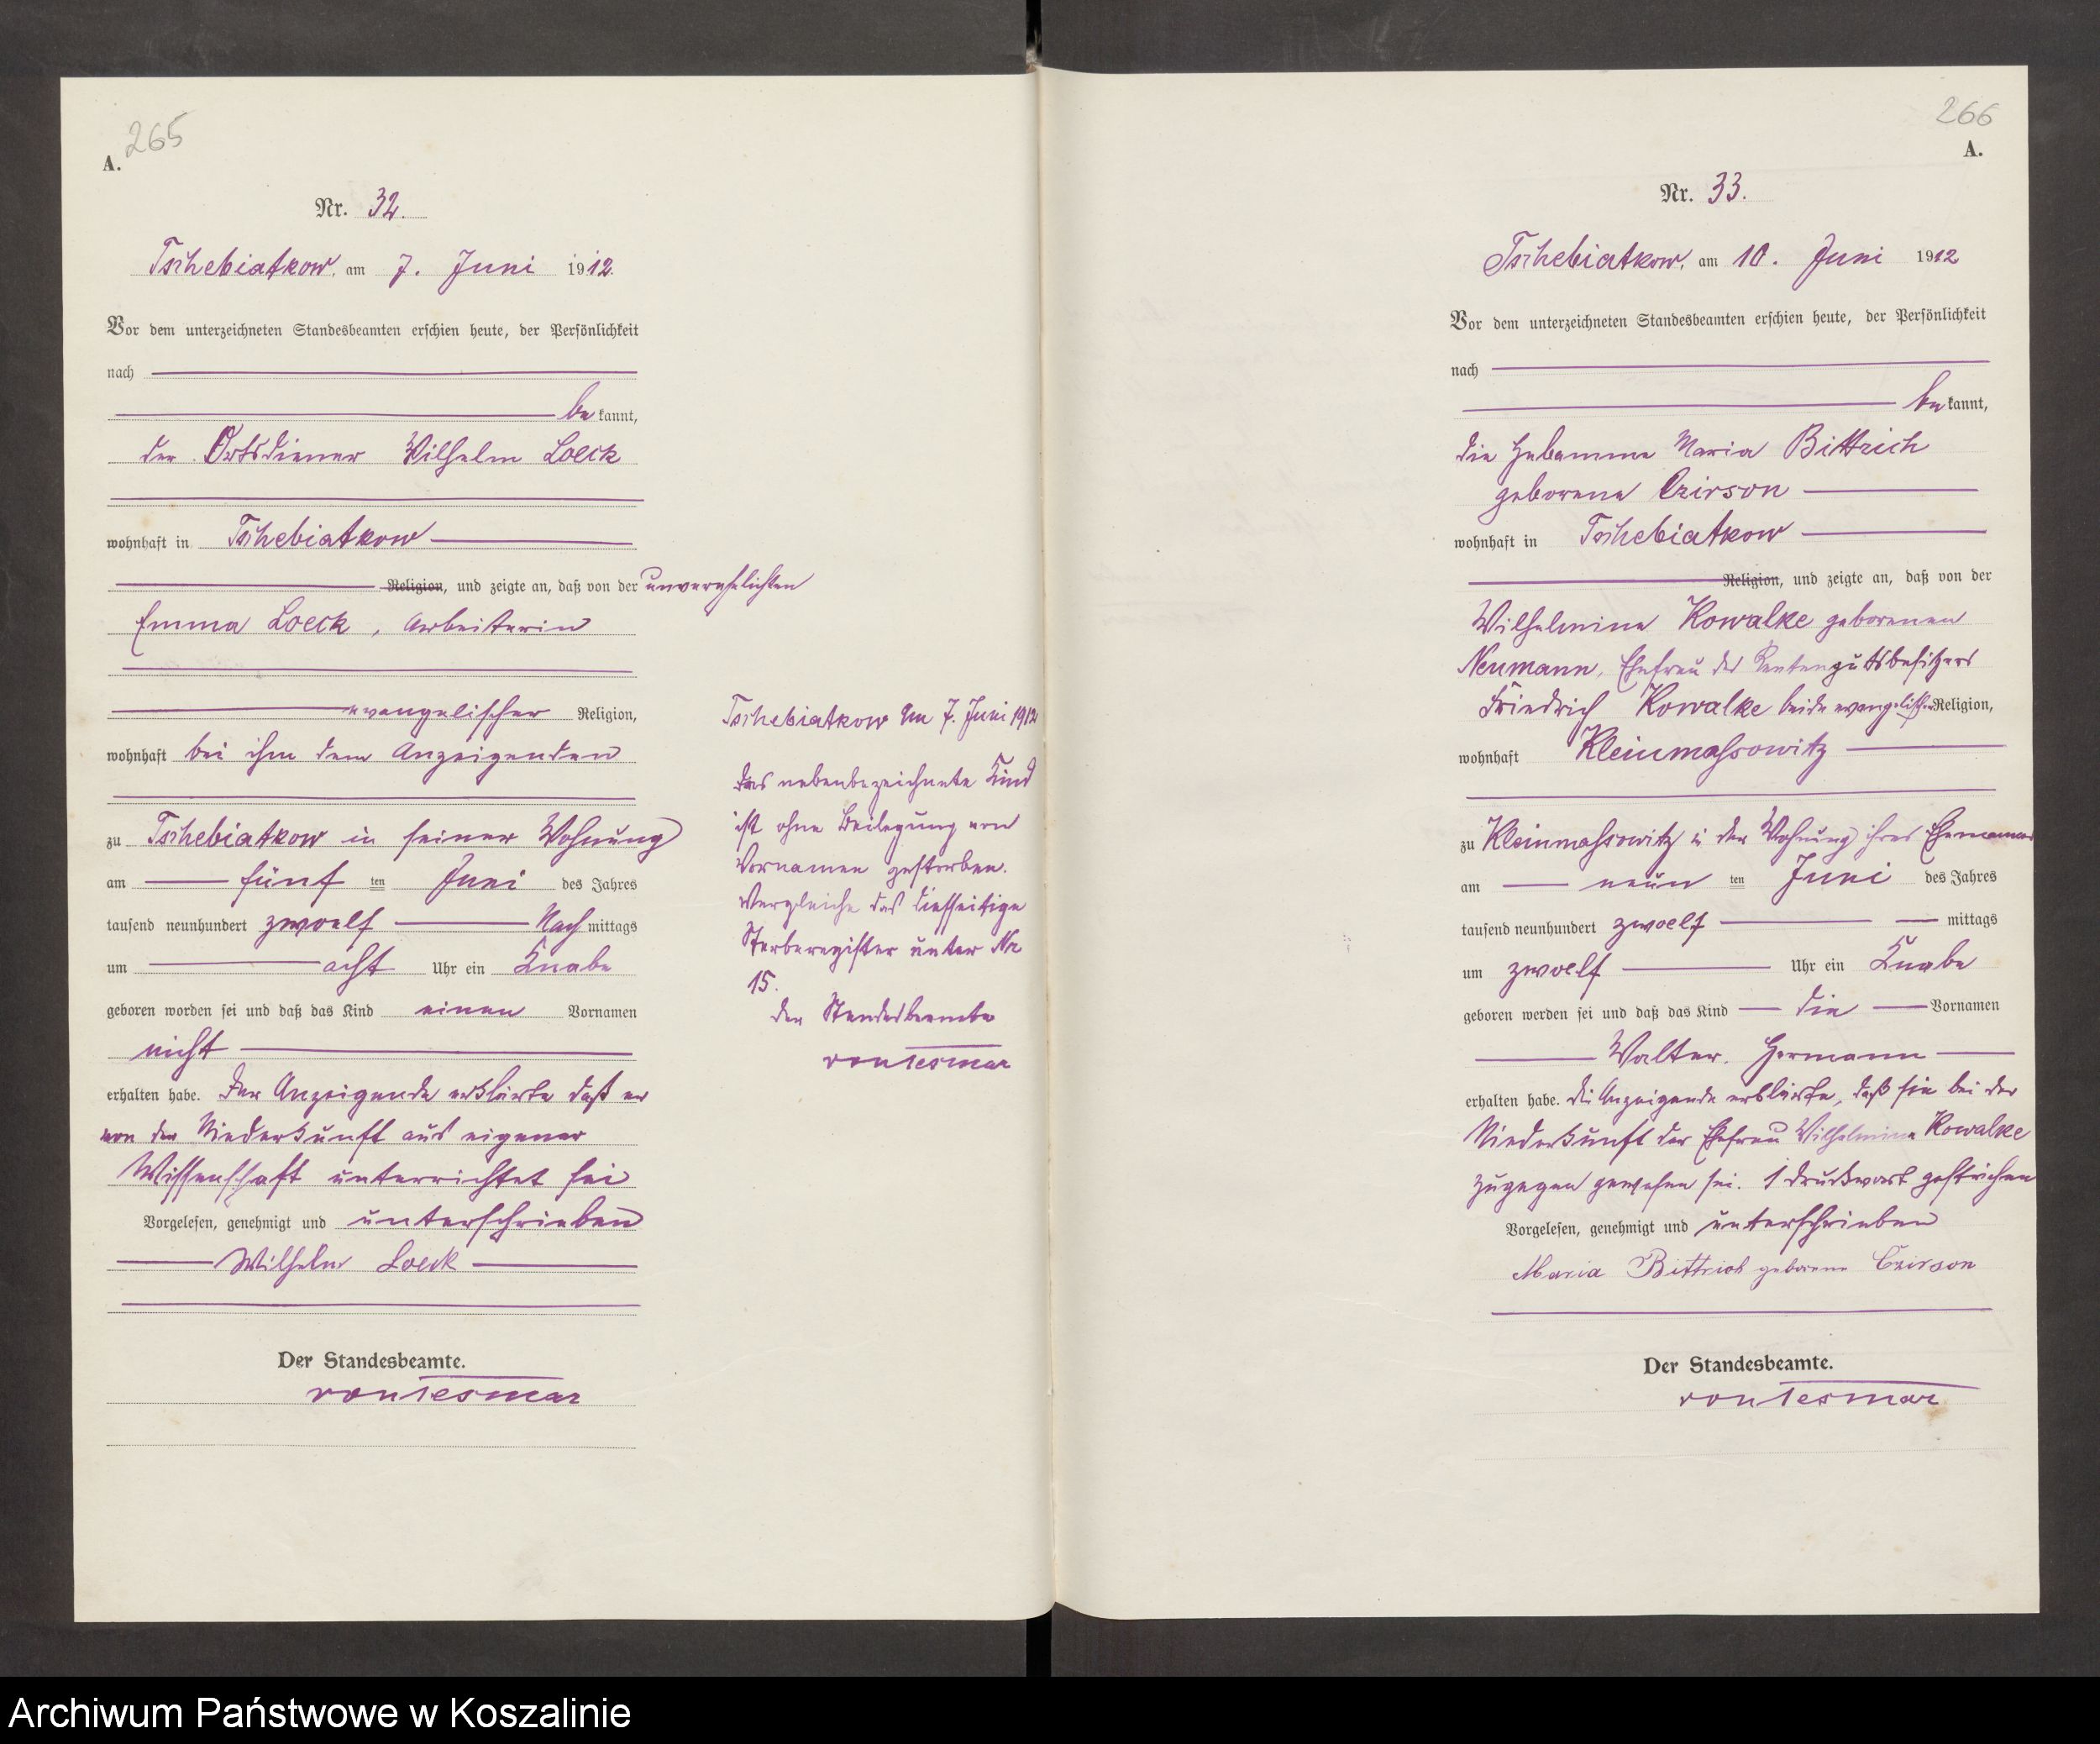 265
A.
Nr. 32.
Tschebiatkow, am 7. Juni 1912.
Vor dem unterzeichneten Standesbeamten erschien heute, der Persönlichkeit
nach
be kannt,
der Ortsdiener Wilhelm Loeck
wohnhaft in Tschebiatkow
Religion, und zeigte an, daß von der unverehelichten
Emma Loeck, Arbeiterin
evangelischer Religion,
wohnhaft bei ihm dem Anzeigenden
zu Tschebiatkow in seiner Wohnung
am fünf ten Juni des Jahres
tausend neunhundert zwoelf Nach mittags
um acht Uhr ein Knabe
geboren worden sei und daß das Kind einen Vornamen
nicht
erhalten habe. Der Anzeigende erklärte daß er
von der Niederkunft aus eigener
Wissenschaft unterrichtet sei
Vorgelesen, genehmigt und unterschrieben
Wilhelm Loeck
Der Standesbeamte.
von Tesmar
Tschebiatkow am 7. Juni 1912
Das nebenbezeichnete Kind
ist ohne Beilegung von
Vornamen gestorben.
Vergleiche das diesseitige
Sterberegister unter Nr
15.
Der Standesbeamte
von Tesmar
266
A.
Nr. 33.
Tschebiatkow, am 10. Juni 1912
Vor dem unterzeichneten Standesbeamten erschien heute, der Persönlichkeit
nach
be kannt,
die Hebamme Maria Bittrich
geborene Czirson
wohnhaft in Tschebiatkow
Religion, und zeigte an, daß von der
Wilhelmine Kowalke geborenen
Neumann, Ehefrau des Rentengutsbesitzers
Friedrich Kowalke beide evangelischer Religion,
wohnhaft Kleinmassowitz
zu Kleinmassowitz in der Wohnung ihres Ehemannes
am neun ten Juni des Jahres
tausend neunhundert zwoelf mittags
um zwoelf Uhr ein Knabe
geboren worden sei und daß das Kind die Vornamen
Walter. Hermann
erhalten habe. Die Anzeigende erklärte, daß sie bei der
Niederkunft der Ehefrau Wilhelmine Kowalke
zugegen gewesen sei. 1 Druckwort gestrichen
Vorgelesen, genehmigt und unterschrieben
Maria Bittrich geborene Czirson
Der Standesbeamte.
von Tesmar
Archiwum Państwowe w Koszalinie